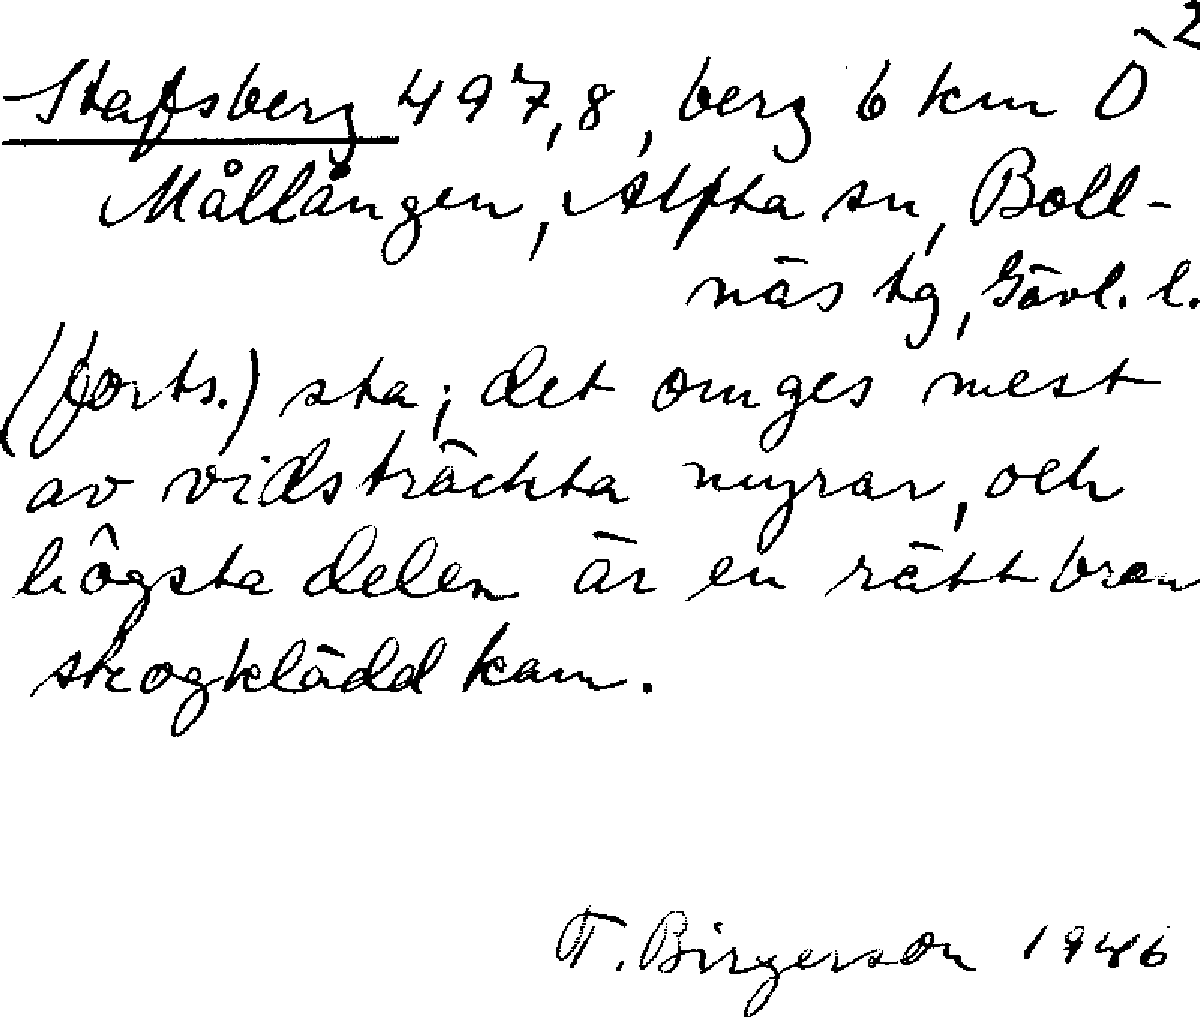 2
Stafsberg 497,8, berg 6 km Ö
Mållången, Alfta sn, Boll-
näs tg, Gävl. l.
(forts.) sta; det omges mest
av vidsträckta myrar, och
högsta delen är en rätt bran
skogklädd kam.
T. Birgerson 1946